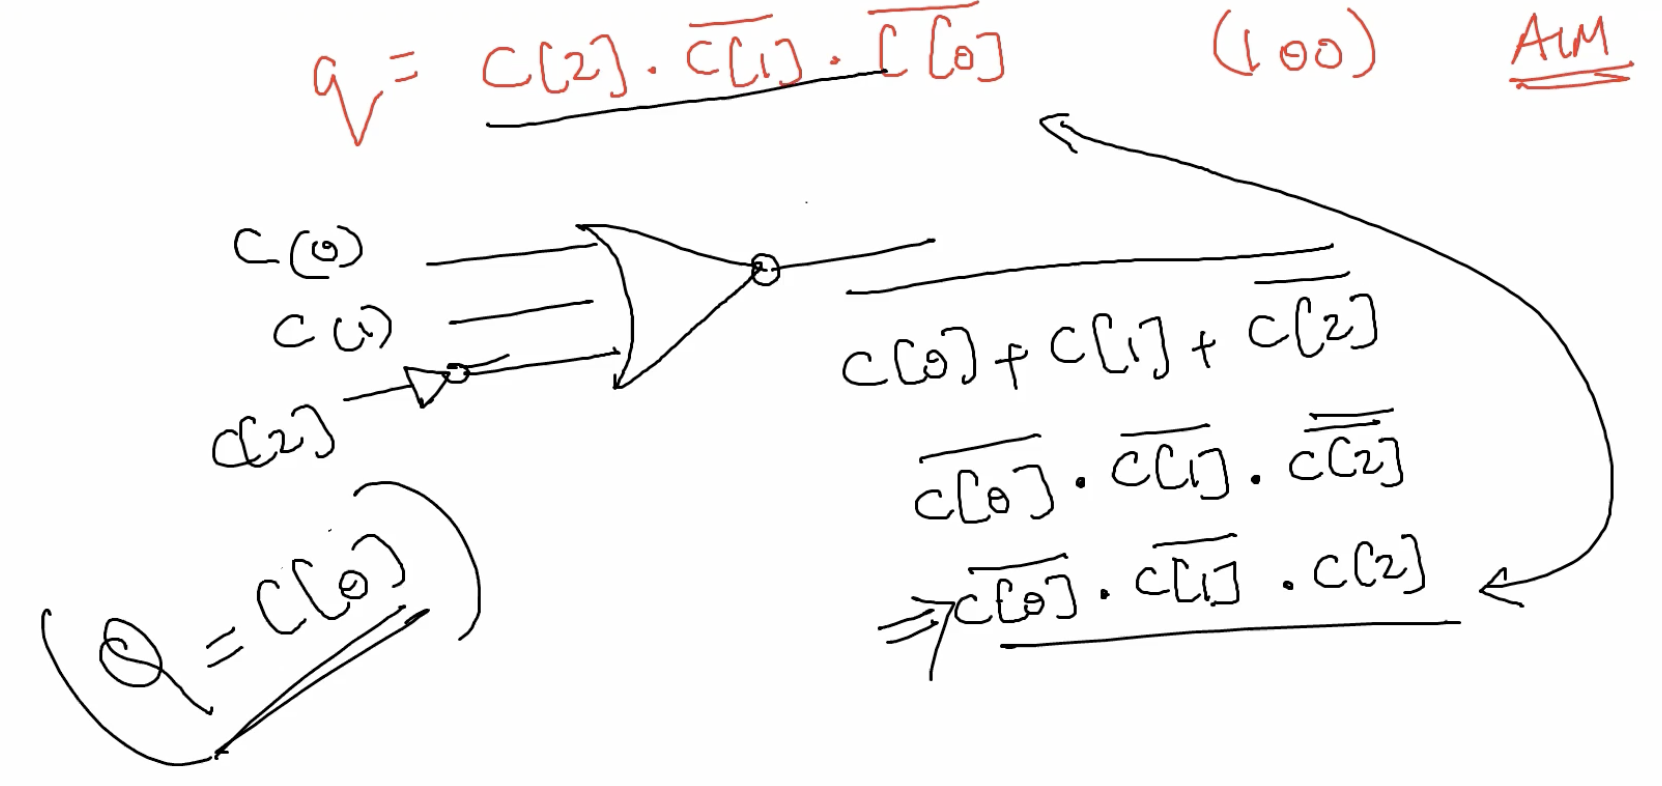 q = C[2] . C̅[̅1̅]̅ . C̅[̅0̅]̅ (100) AIM
C(0)
C(1)
C[2]
C[0] + C[1] + C̅[̅2̅]̅
C̅[̅0̅]̅ . C̅[̅1̅]̅ . C̿[̿2̿]̿
⇒ C̅[̅0̅]̅ . C̅[̅1̅]̅ . C[2]
(Q = C[0])